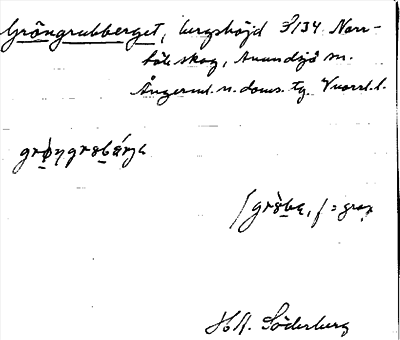 Gröngrubberget, bergshöjd 3/134 Norr-
böle skog, Anundsjö sn.
Ångerml. n. doms. tg. Vnorrl. l.
grøngrubbärje
f. = grop
H. A. Söderberg